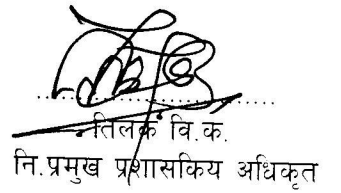 तिलक वि.क.
नि.प्रमुख प्रशासकिय अधिकृत